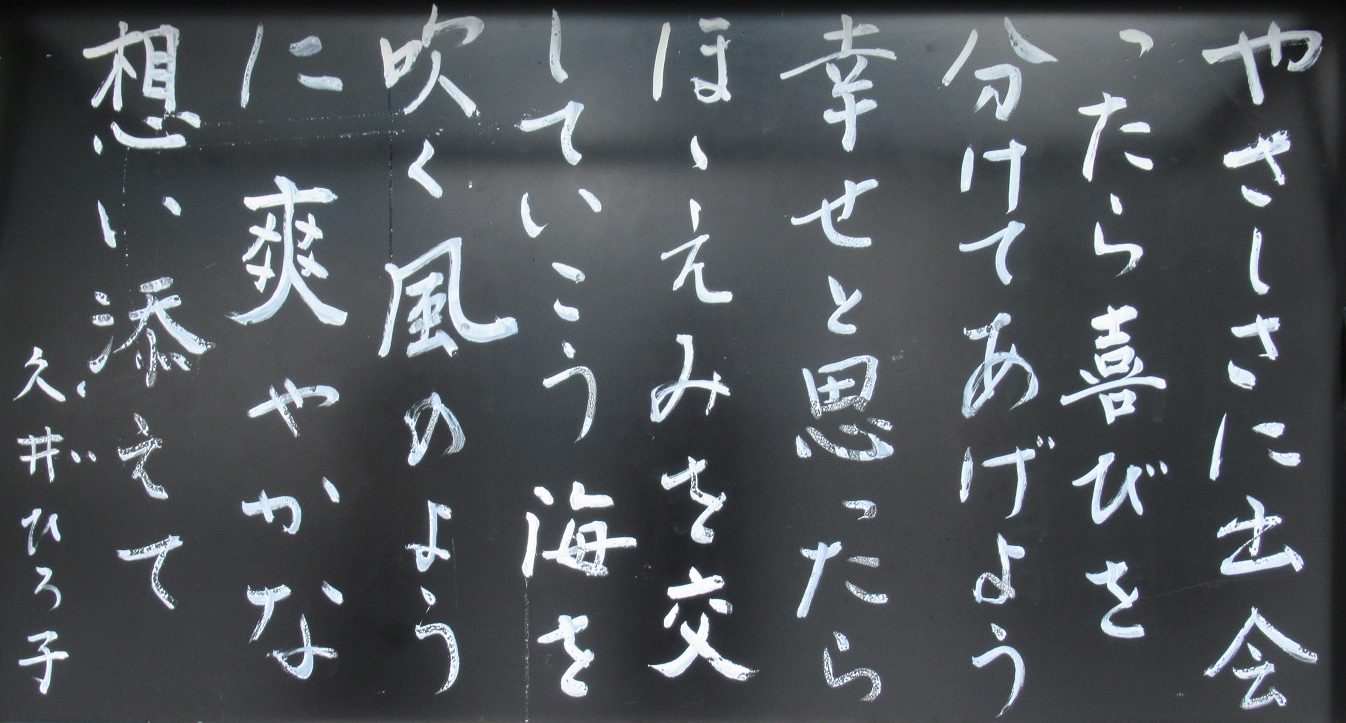 やさしさに出会
ったら喜びを
分けてあげよう
幸せと思ったら
ほゝえみを交
していこう海を
吹く風のよう
に爽やかな
想い添えて
久井ひろ子